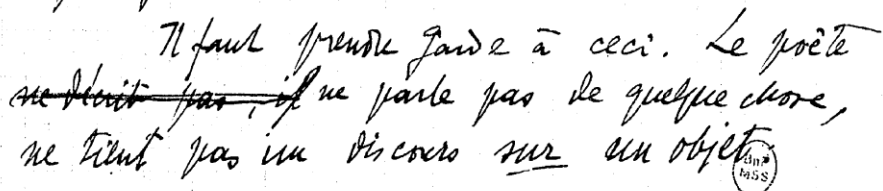 Il faut prendre garde à ceci. Le poëte
ne décrit pas, il ne parle pas de quelque chose,
ne tient pas un discours sur un objet.
BnF
MSS